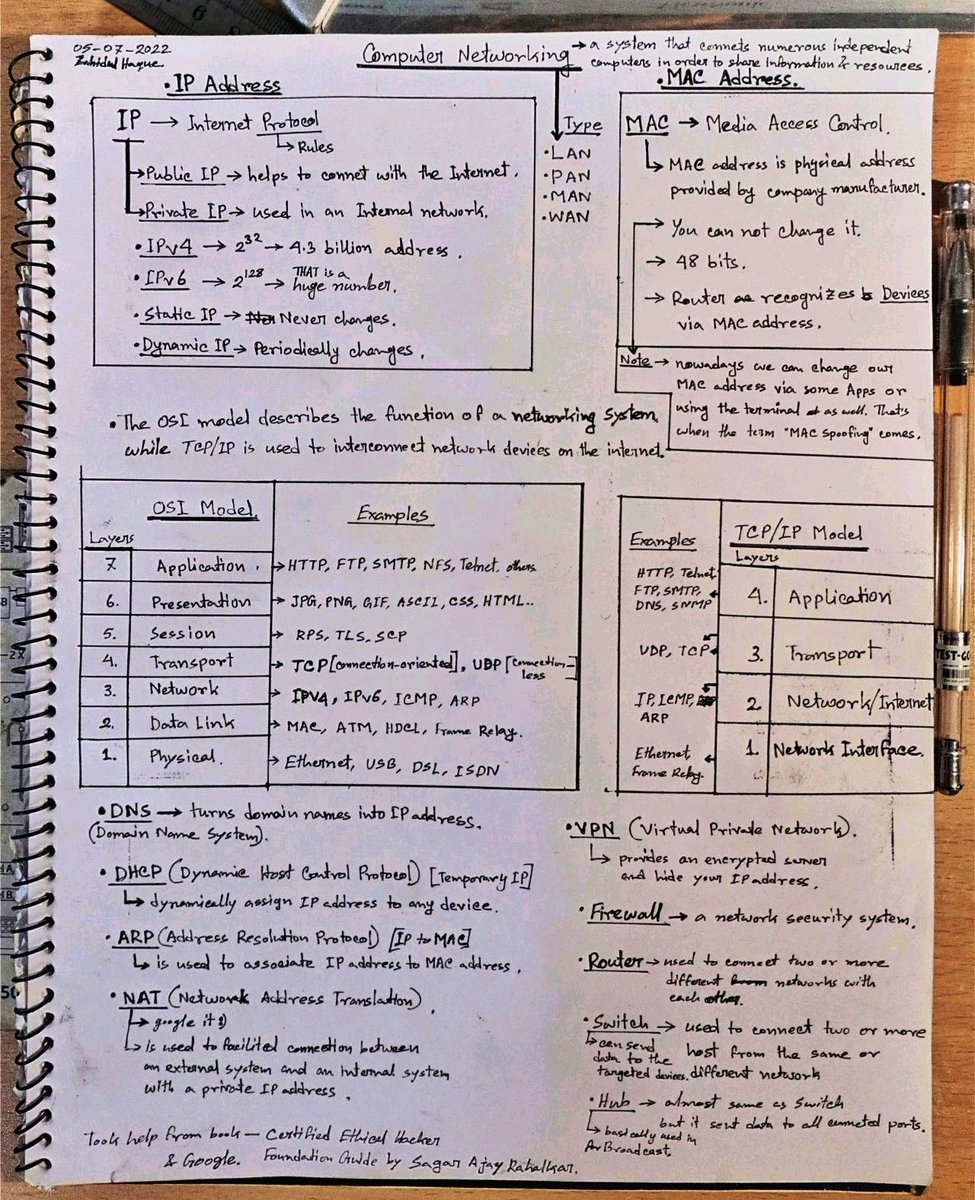 05-07-2022
Zahidul Haque
Computer Networking → a system that connets numerous independent
computers in order to share information & resources.
Type
• LAN
• PAN
• MAN
• WAN
• IP Address
IP → Internet Protocol
↳ Rules
→ Public IP → helps to connet with the Internet.
→ Private IP → used in an Internal network.
• IPv4 → 2^32 → 4.3 billion address.
• IPv6 → 2^128 → THAT is a huge number.
• Static IP → Never changes.
• Dynamic IP → Periodically changes.
• MAC Address.
MAC → Media Access Control.
↳ MAC address is physical address
provided by company manufacturer.
→ You can not change it.
→ 48 bits.
→ Router recognizes Devices
via MAC address.
Note → nowadays we can change our
MAC address via some Apps or
using the terminal as well. That's
when the term "MAC Spoofing" comes.
• The OSI model describes the function of a networking system
while TCP/IP is used to interconnect network devices on the internet.
OSI Model Examples
Layers
7. Application. → HTTP, FTP, SMTP, NFS, Telnet, others
6. Presentation → JPG, PNG, GIF, ASCII, CSS, HTML..
5. Session → RPS, TLS, SCP
4. Transport → TCP [connection-oriented], UDP [connection-less
3. Network → IPV4, IPv6, ICMP, ARP
2. Data Link → MAC, ATM, HDCL, Frame Relay.
1. Physical. → Ethernet, USB, DSL, ISDN
Examples TCP/IP Model
Layers
HTTP, Telnet
FTP, SMTP,
DNS, SNMP
4. Application
UDP, TCP
3. Transport
IP, ICMP,
ARP
2. Network/Internet
Ethernet,
Frame Relay.
1. Network Interface.
• DNS → turns domain names into IP address.
(Domain Name System).
• DHCP (Dynamic Host Control Protocol) [Temporary IP]
↳ dynamically assign IP address to any device.
• ARP (Address Resolution Protocol) [IP to MAC]
↳ is used to associate IP address to MAC address.
• NAT (Network Address Translation).
→ google it :)
↳ Is used to facilited connection between
an external system and an internal system
with a private IP address.
• VPN (Virtual Private Network).
↳ provides an encrypted server
and hide your IP address.
• Firewall → a network security system.
• Router → used to connect two or more
different networks with
each other.
• Switch → used to connect two or more
host from the same or
different network
↳ can send
data to the
targeted devices.
• Hub → almost same as Switch
but it sent data to all conneted ports.
↳ basically used in
Broadcast.
Took help from book — Certified Ethical Hacker
& Google. Foundation Guide by Sagar Ajay Rahalkar.
TEST-GO